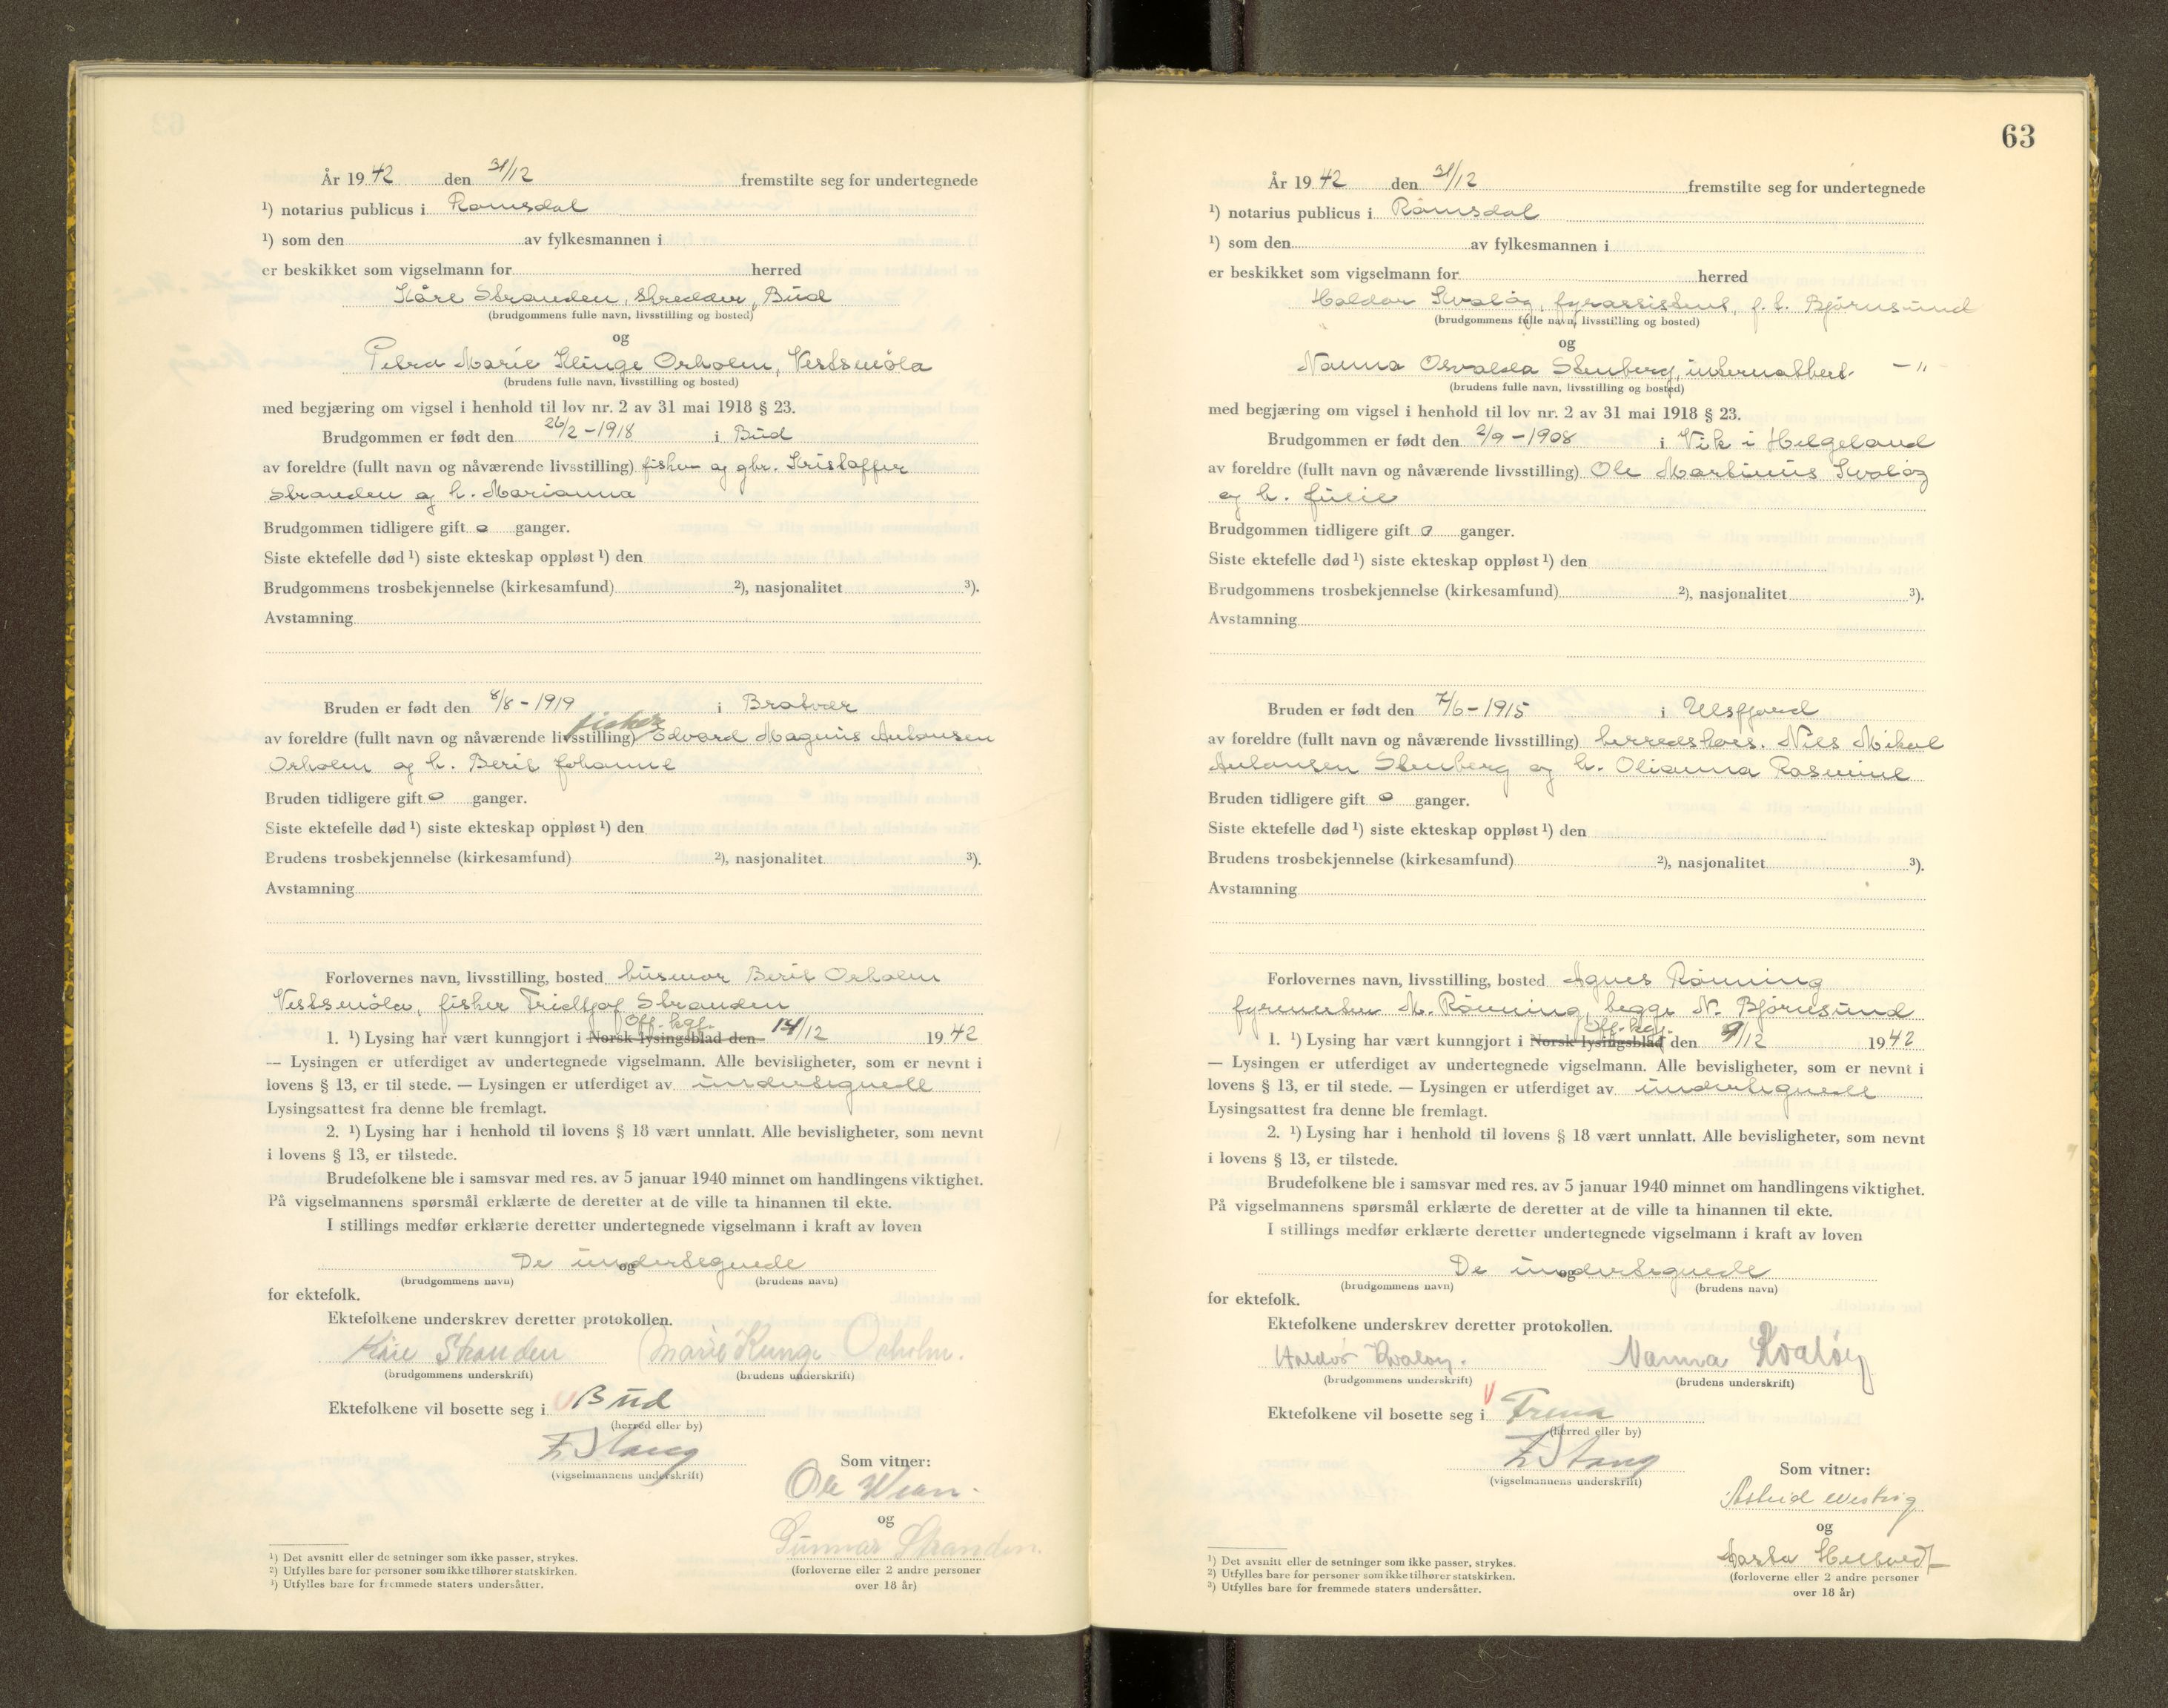 År 1942 den 31/12 fremstilte seg for undertegnede
¹) notarius publicus i Romsdal
¹) som den av fylkesmannen i
er beskikket som vigselmann for herred
Kåre Stranden, skredder, Bud
(brudgommens fulle navn, livsstilling og bosted)
og
Petra Marie Klinge Orholm, Vestsmöla
(brudens fulle navn, livsstilling og bosted)
med begjæring om vigsel i henhold til lov nr. 2 av 31 mai 1918 § 23.
Brudgommen er født den 26/2 - 1918 i Bud
av foreldre (fullt navn og nåværende livsstilling) fisker og gbr. Kristoffer
Stranden og h. Marianna
Brudgommen tidligere gift o ganger.
Siste ektefelle død ¹) siste ekteskap oppløst ¹) den
Brudgommens trosbekjennelse (kirkesamfund) ²), nasjonalitet ³).
Avstamning
Bruden er født den 8/8 - 1919 i Bratvær
fisker
av foreldre (fullt navn og nåværende livsstilling) Edvard Magnus Antonsen
Orholm og h. Berit Johanne
Bruden tidligere gift o ganger.
Siste ektefelle død ¹) siste ekteskap oppløst ¹) den
Brudens trosbekjennelse (kirkesamfund) ²), nasjonalitet ³).
Avstamning
Forlovernes navn, livsstilling, bosted husmor Berit Orholm
Vestsmöla, fisker Fridtjof Stranden
Off. kgj.
1. ¹) Lysing har vært kunngjort i Norsk lysingsblad den 14/12 1942
— Lysingen er utferdiget av undertegnede vigselmann. Alle bevisligheter, som er nevnt i
lovens § 13, er til stede. — Lysingen er utferdiget av undertegnede
Lysingsattest fra denne ble fremlagt.
2. ¹) Lysing har i henhold til lovens § 18 vært unnlatt. Alle bevisligheter, som nevnt
i lovens § 13, er tilstede.
Brudefolkene ble i samsvar med res. av 5 januar 1940 minnet om handlingens viktighet.
På vigselmannens spørsmål erklærte de deretter at de ville ta hinannen til ekte.
I stillings medfør erklærte deretter undertegnede vigselmann i kraft av loven
De undertegnede
og
(brudgommens navn) (brudens navn)
for ektefolk.
Ektefolkene underskrev deretter protokollen.
Kåre Stranden Marie Klinge Orholm.
(brudgommens underskrift) (brudens underskrift)
Ektefolkene vil bosette seg i Bud
(herred eller by)
Stang
(vigselmannens underskrift)
Som vitner:
Ole
og
Gunnar Stranden.
(forloverne eller 2 andre personer
over 18 år)
¹) Det avsnitt eller de setninger som ikke passer, strykes.
²) Utfylles bare for personer som ikke tilhører statskirken.
³) Utfylles bare for fremmede staters undersåtter.
63
År 1942 den 31/12 fremstilte seg for undertegnede
¹) notarius publicus i Romsdal
¹) som den av fylkesmannen i
er beskikket som vigselmann for herred
Haldor Kvaløy, fyrassistent, f.t. Bjørnsund
(brudgommens fulle navn, livsstilling og bosted)
og
Nanna Osvalda Stenberg, internatbest. - "
(brudens fulle navn, livsstilling og bosted)
med begjæring om vigsel i henhold til lov nr. 2 av 31 mai 1918 § 23.
Brudgommen er født den 2/9 - 1908 i Vik i Helgeland
av foreldre (fullt navn og nåværende livsstilling) Ole Martinus Kvaløy
og h. Julie
Brudgommen tidligere gift o ganger.
Siste ektefelle død ¹) siste ekteskap oppløst ¹) den
Brudgommens trosbekjennelse (kirkesamfund) ²), nasjonalitet ³).
Avstamning
Bruden er født den 7/6 - 1915 i Ulsfjord
av foreldre (fullt navn og nåværende livsstilling) herredskass. Nils Mikal
Antonsen Stenberg og h. Olianna Rasmine
Bruden tidligere gift o ganger.
Siste ektefelle død ¹) siste ekteskap oppløst ¹) den
Brudens trosbekjennelse (kirkesamfund) ²), nasjonalitet ³).
Avstamning
Forlovernes navn, livsstilling, bosted Agnes Rønning
fyrmester M. Rønning, begge N. Bjørnsund
Off. kgj.
1. ¹) Lysing har vært kunngjort i Norsk lysingsblad den 9/12 1942
— Lysingen er utferdiget av undertegnede vigselmann. Alle bevisligheter, som er nevnt i
lovens § 13, er til stede. — Lysingen er utferdiget av undertegnede
Lysingsattest fra denne ble fremlagt.
2. ¹) Lysing har i henhold til lovens § 18 vært unnlatt. Alle bevisligheter, som nevnt
i lovens § 13, er tilstede.
Brudefolkene ble i samsvar med res. av 5 januar 1940 minnet om handlingens viktighet.
På vigselmannens spørsmål erklærte de deretter at de ville ta hinannen til ekte.
I stillings medfør erklærte deretter undertegnede vigselmann i kraft av loven
De undertegnede
og
(brudgommens navn) (brudens navn)
for ektefolk.
Ektefolkene underskrev deretter protokollen.
Haldor Kvaløy. Nanna Kvaløy
(brudgommens underskrift) (brudens underskrift)
Ektefolkene vil bosette seg i Frena
(herred eller by)
Stang
(vigselmannens underskrift)
Som vitner:
Astrid
og
(forloverne eller 2 andre personer
over 18 år)
¹) Det avsnitt eller de setninger som ikke passer, strykes.
²) Utfylles bare for personer som ikke tilhører statskirken.
³) Utfylles bare for fremmede staters undersåtter.